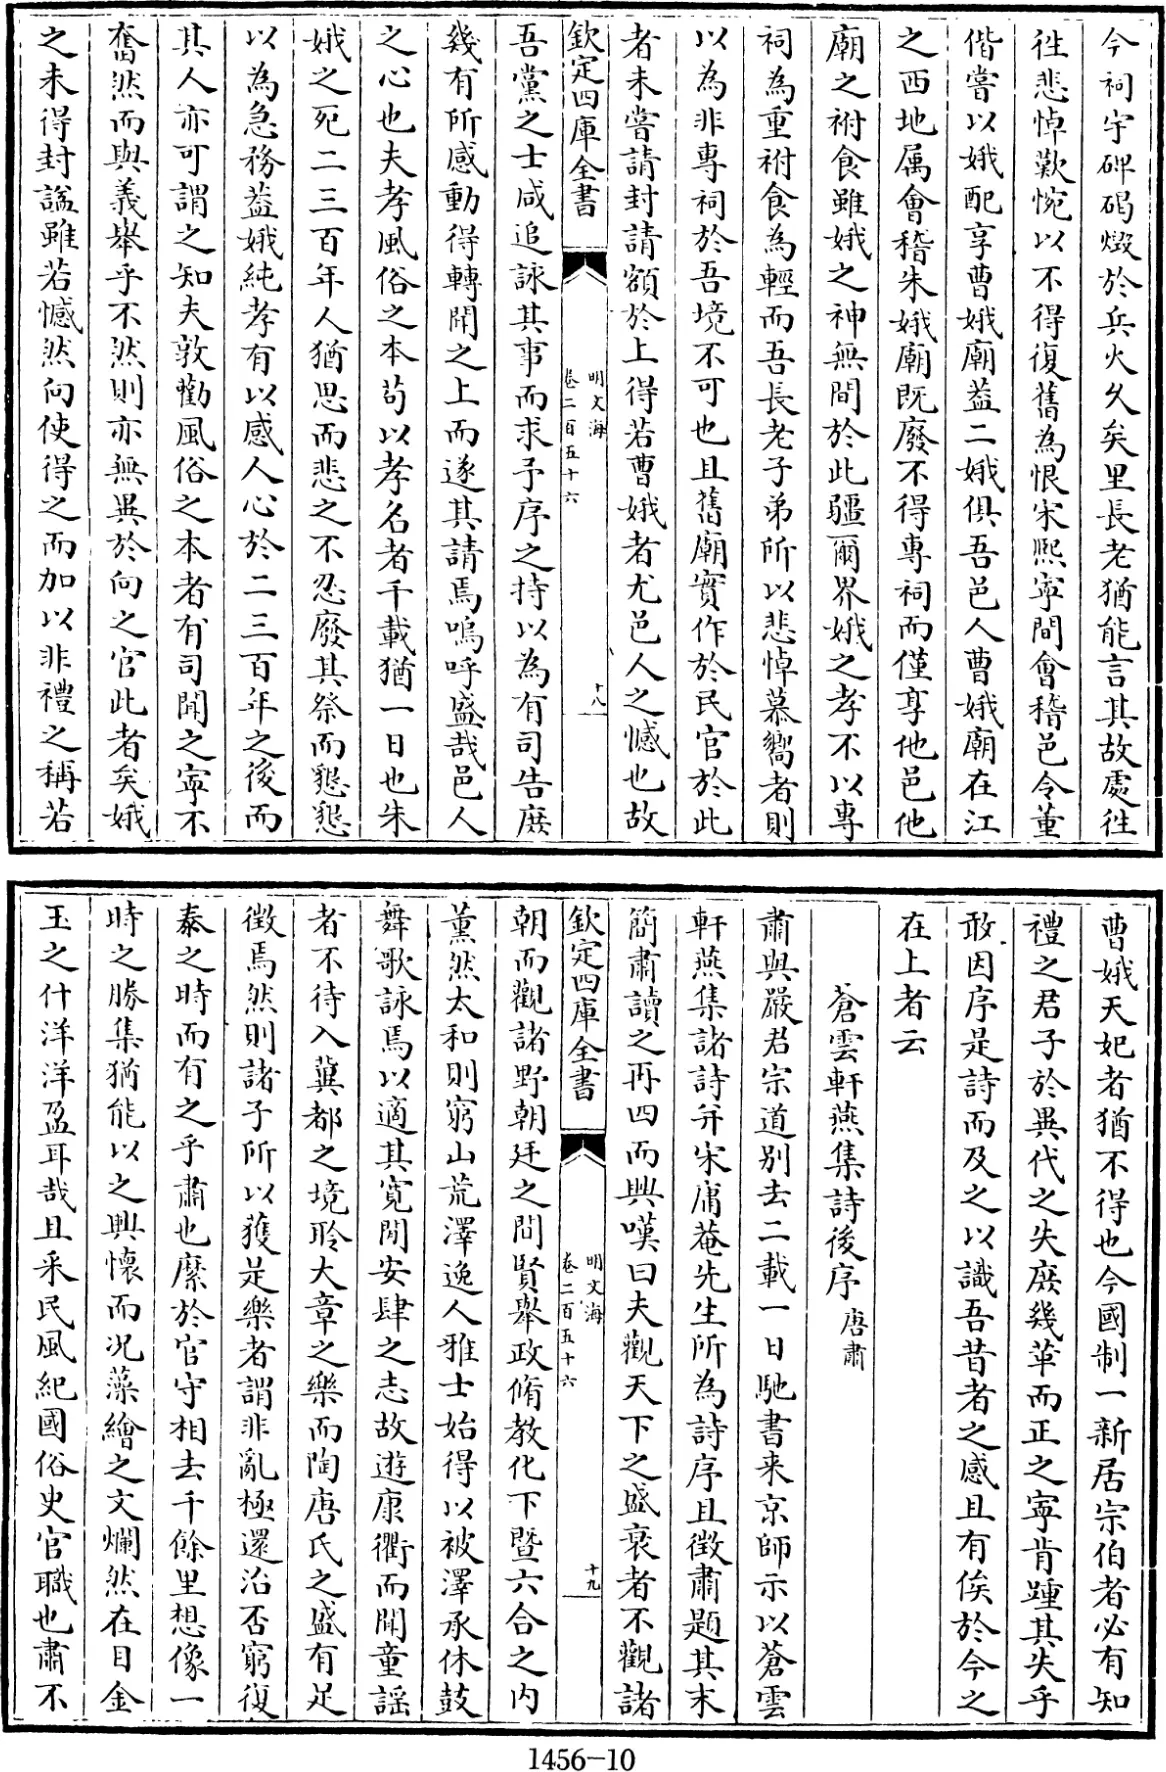 今祠宇碑碣燬於兵火久矣里長老猶能言其故處往
徃悲悼歎惋以不得復舊為恨宋熙寧間會稽邑令董
偕嘗以娥配享曹娥廟葢二娥俱吾邑人曹娥廟在江
之西地属會稽朱娥廟既廢不得專祠而僅享他邑他
廟之祔食雖娥之神無間於此疆爾界娥之孝不以專
祠為重祔食為輕而吾長老子弟所以悲悼慕嚮者則
以為非專祠於吾境不可也且舊廟實作於民官於此
者未嘗請封請額於上得若曹娥者尤邑人之憾也故
欽定四庫全書
明文海
卷二百五十六
十八
吾黨之士咸追詠其事而求予序之持以為有司告庶
幾有所感動得轉聞之上而遂其請焉嗚呼盛哉邑人
之心也夫孝風俗之本茍以孝名者千載猶一日也朱
娥之死二三百年人猶思而悲之不忍廢其祭而懇懇
以為急務葢娥純孝有以感人心於二三百年之後而
其人亦可謂之知夫敦勸風俗之本者有司聞之寧不
奮然而與義舉乎不然則亦無異於向之官此者矣娥
之未得封諡雖若憾然向使得之而加以非禮之稱若
曹娥天妃者猶不得也今國制一新居宗伯者必有知
禮之君子於異代之失庶幾革而正之寧肯踵其失乎
敢因序是詩而及之以識吾昔者之感且有俟於今之
在上者云
蒼雲軒燕集詩後序 唐肅
肅與嚴君宗道別去二載一日馳書来京師示以蒼雲
軒燕集諸詩并宋庸菴先生所為詩序且徵肅題其末
簡肅讀之再四而興嘆曰夫觀天下之盛衰者不觀諸
欽定四庫全書
明文海
卷二百五十六
十九
朝而觀諸野朝廷之間賢舉政脩教化下暨六合之内
薰然太和則窮山荒澤逸人雅士始得以被澤承休鼓
舞歌詠焉以適其寛閒安肆之志故遊康衢而聞童謡
者不待入冀都之境聆大章之樂而陶唐氏之盛有足
徵焉然則諸子所以獲是樂者謂非亂極還治否窮復
泰之時而有之乎肅也縻於官守相去千餘里想像一
時之勝集猶能以之興懷而况藻繪之文爛然在目金
玉之什洋洋盈耳哉且采民風紀國俗史官職也肅不
1456-10